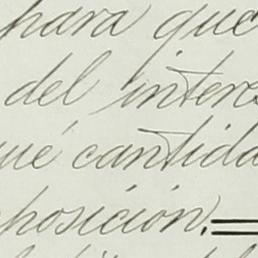 para que
del interes
qué cantida
posición.